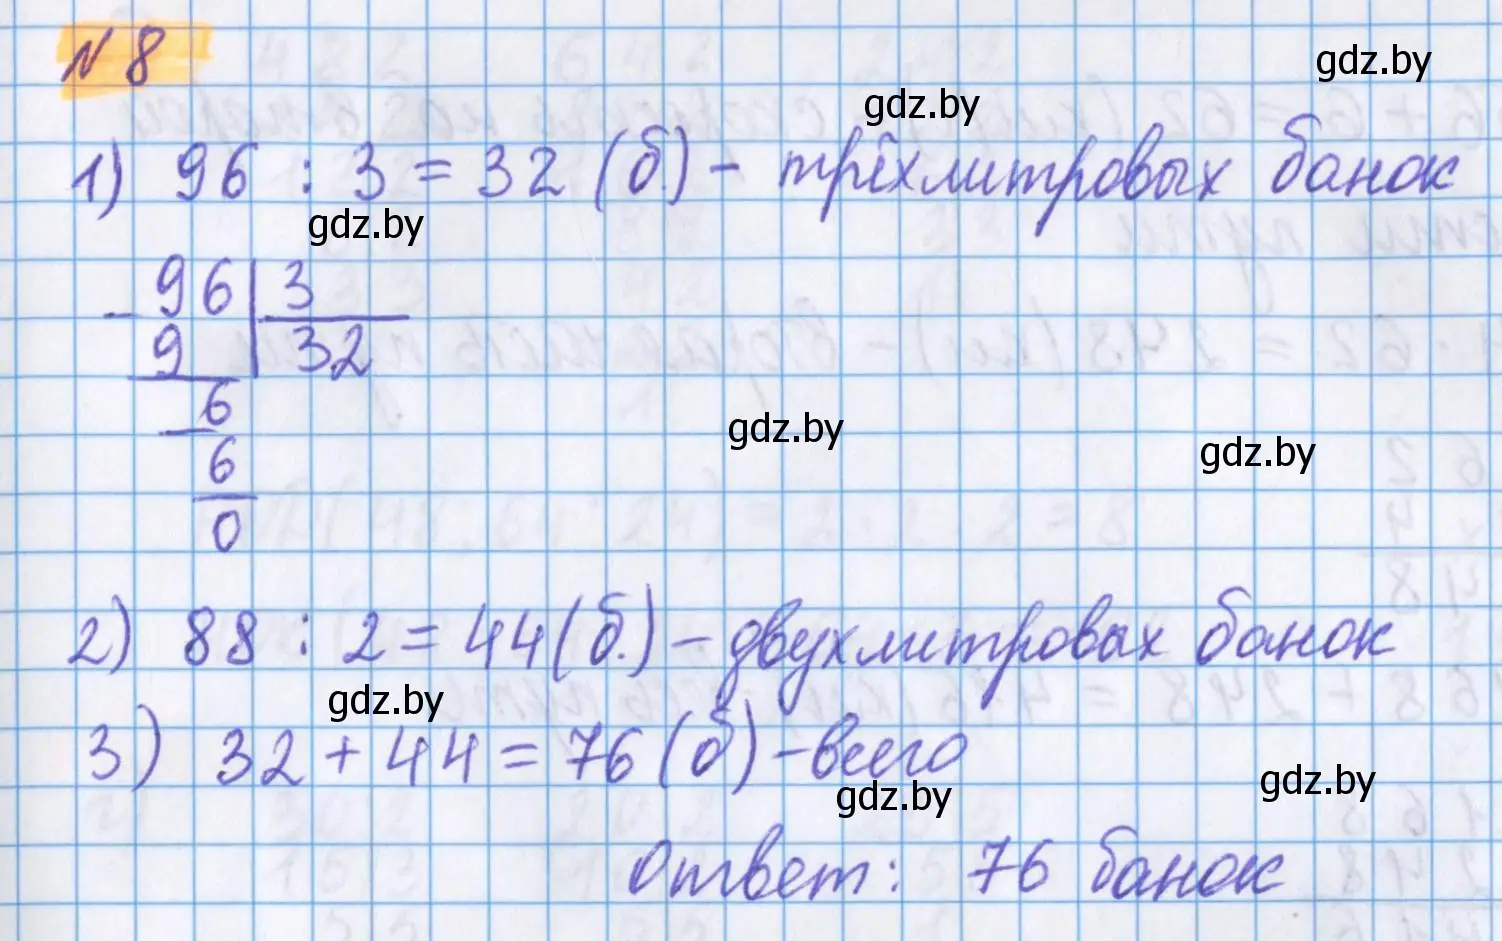 №8
gdz.by
gdz.by
1) 96 : 3 = 32 (б.) - трёхлитровых банок
gdz.by
- 96 | 3
9 | 32
- 6
6
0
gdz.by
gdz.by
2) 88 : 2 = 44 (б.) - двухлитровых банок
gdz.by
3) 32 + 44 = 76 (б) - всего
gdz.by
gdz.by
Ответ: 76 банок